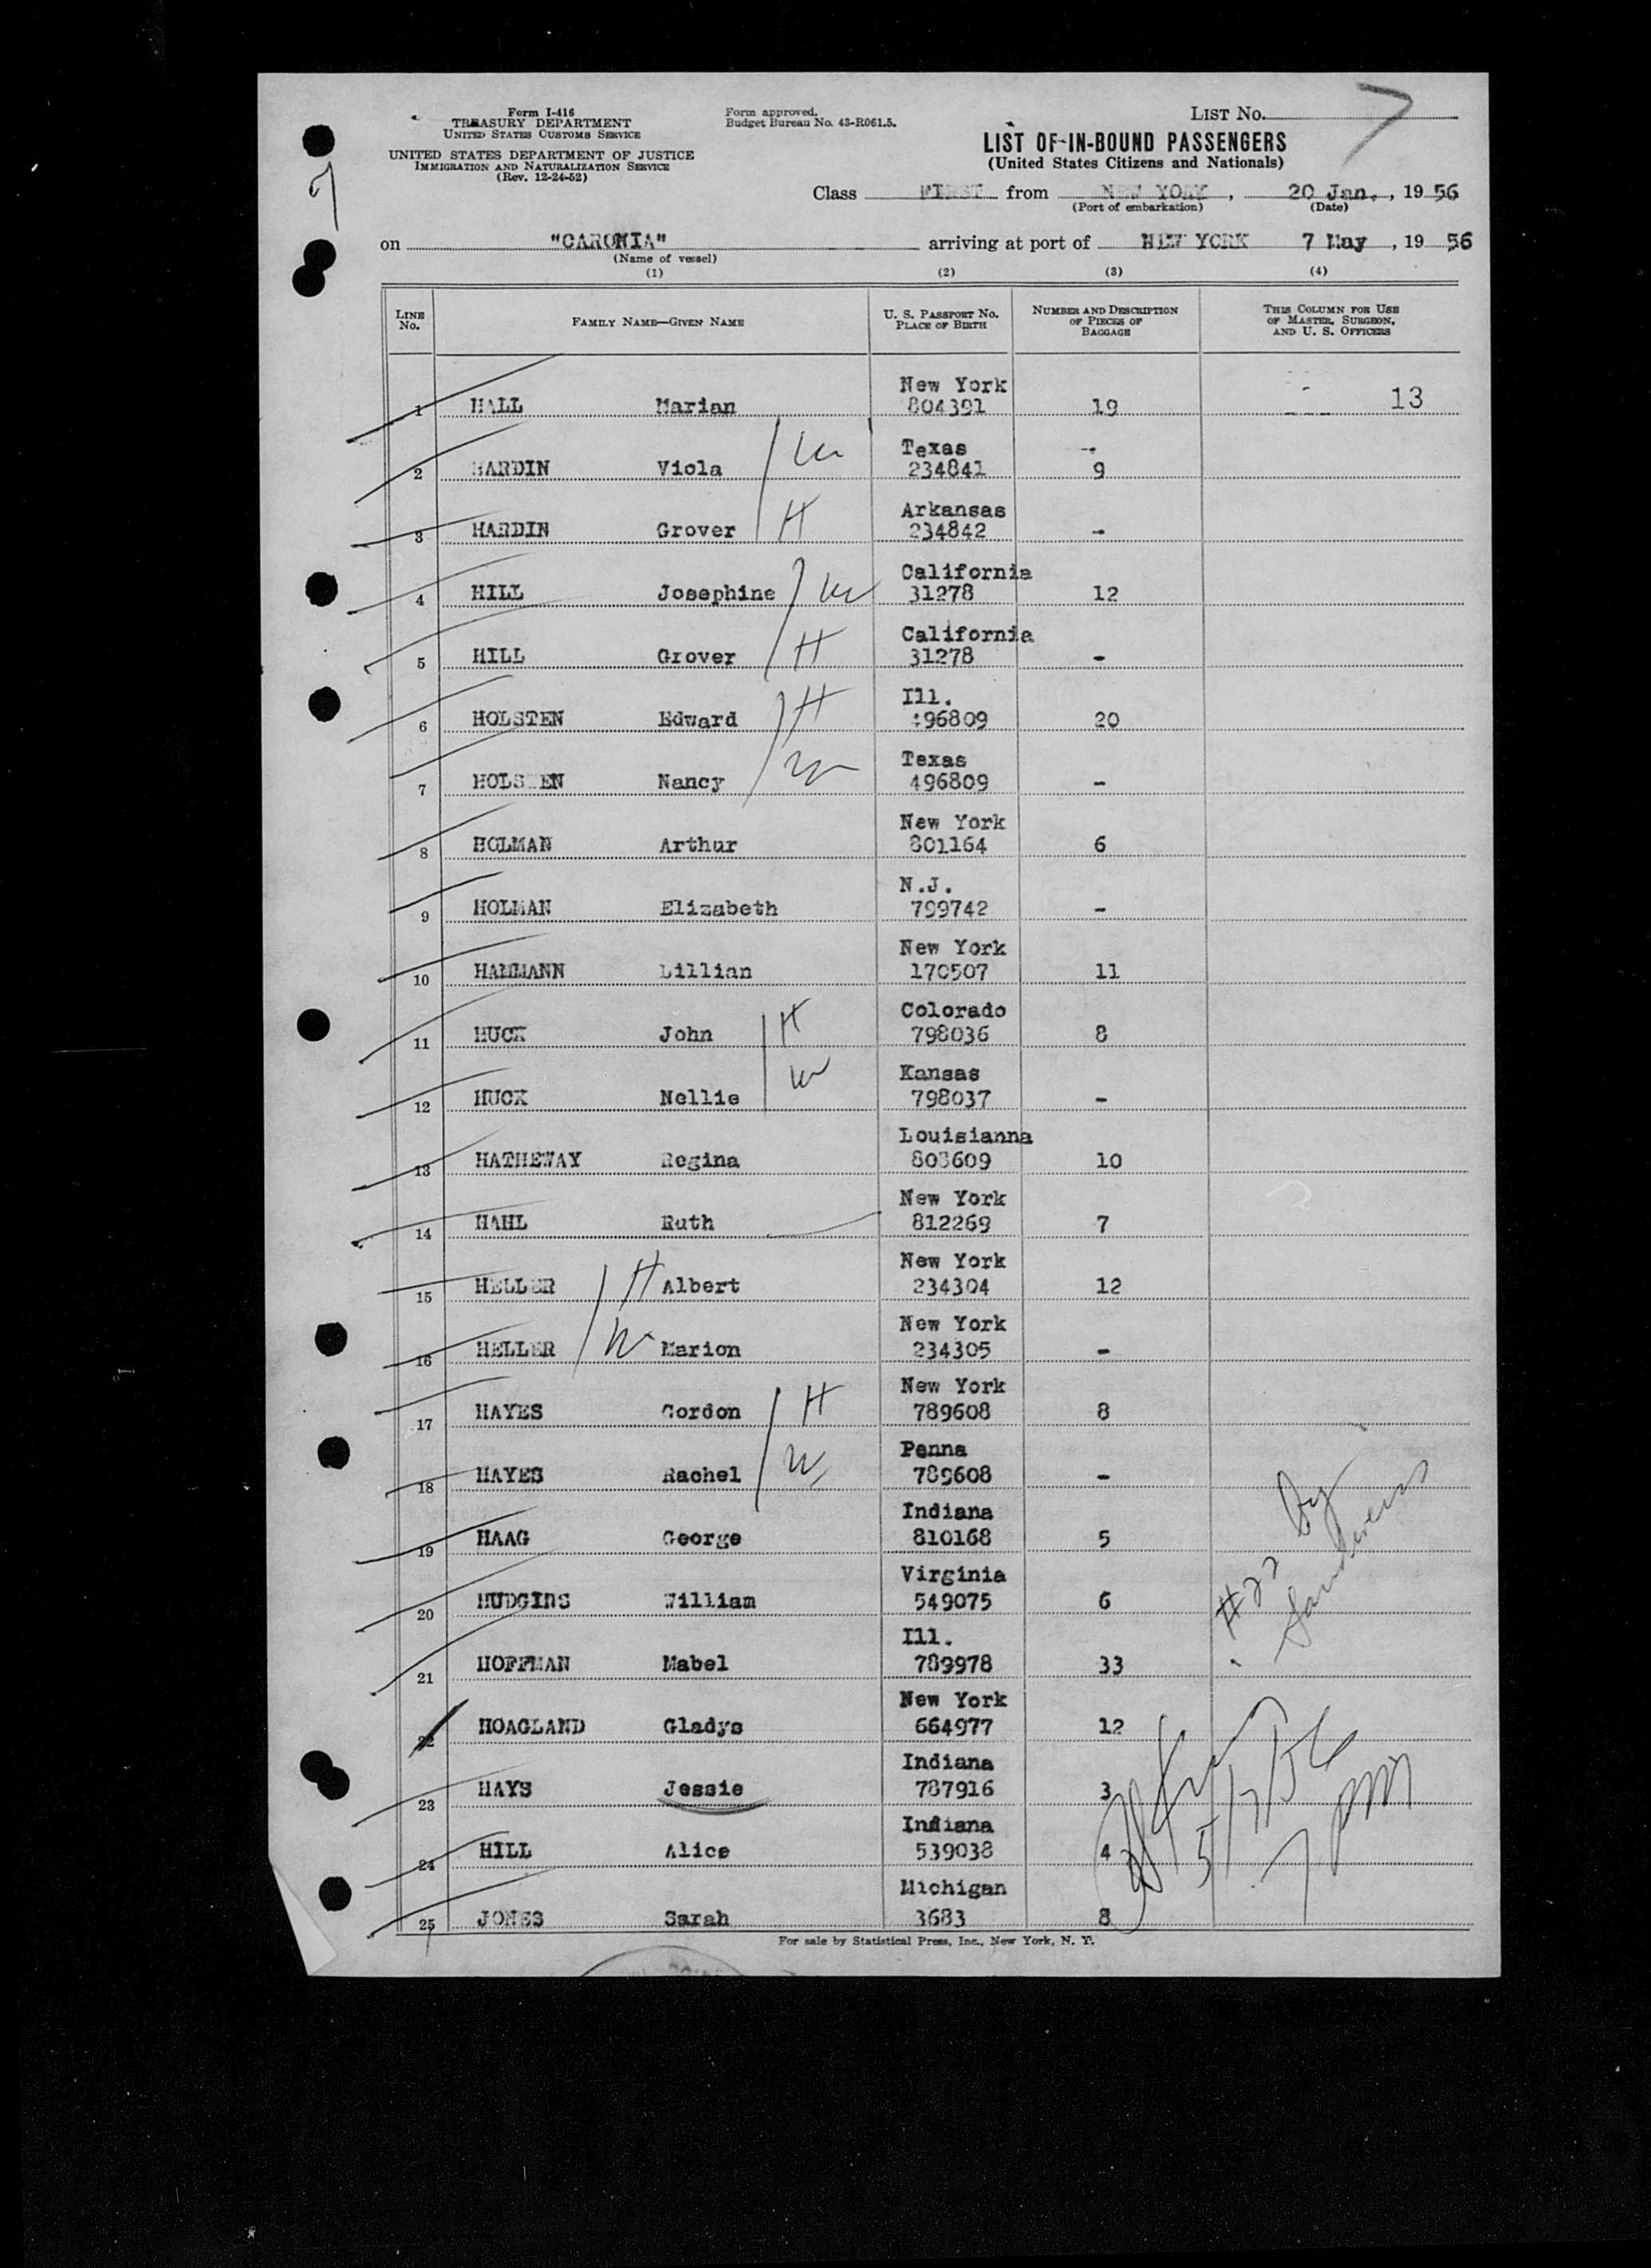 Form I-416
TREASURY DEPARTMENT
UNITED STATES CUSTOMS SERVICE
UNITED STATES DEPARTMENT OF JUSTICE
IMMIGRATION AND NATURALIZATION SERVICE
(Rev. 12-24-52)
Form approved.
Budget Bureau No. 43-R061.5.
LIST No. 7
LIST OF IN-BOUND PASSENGERS
(United States Citizens and Nationals)
Class FIRST from NEW YORK, 20 Jan., 1956
(Port of embarkation) (Date)
on "CARONIA" arriving at port of NEW YORK 7 May, 1956
(Name of vessel)
(1) (2) (3) (4)
LINE No. FAMILY NAME—GIVEN NAME U. S. PASSPORT No. PLACE OF BIRTH NUMBER AND DESCRIPTION OF PIECES OF BAGGAGE THIS COLUMN FOR USE OF MASTER, SURGEON, AND U. S. OFFICERS
New York
1 HALL Marian 804391 19 13
Texas
2 HARDIN Viola W 234841 9
Arkansas
3 HARDIN Grover H 234842 -
California
4 HILL Josephine W 31278 12
California
5 HILL Grover H 31278 -
Ill.
6 HOLSTEN Edward H 496809 20
Texas
7 HOLSTEN Nancy W 496809 -
New York
8 HOLMAN Arthur 801164 6
N.J.
9 HOLMAN Elizabeth 799742 -
New York
10 HAMMANN Lillian 170507 11
Colorado
11 HUCK John H 798036 8
Kansas
12 HUCK Nellie W 798037 -
Louisianna
13 HATHEWAY Regina 803609 10
New York
14 HAHL Ruth 812269 7
New York
15 HELLER H Albert 234304 12
New York
16 HELLER W Marion 234305 -
New York
17 HAYES Gordon H 789608 8
Penna
18 HAYES Rachel W 789608 -
Indiana
19 HAAG George 810168 5
Virginia
20 HUDGINS William 549075 6
Ill.
21 HOFFMAN Mabel 789978 33
#22 By
New York
22 HOAGLAND Gladys 664977 12
Indiana
23 HAYS Jessie 787916 3
Indiana
24 HILL Alice 539038 4
5/7/56
7 PM
Michigan
25 JONES Sarah 3683 8
For sale by Statistical Press, Inc., New York, N. Y.